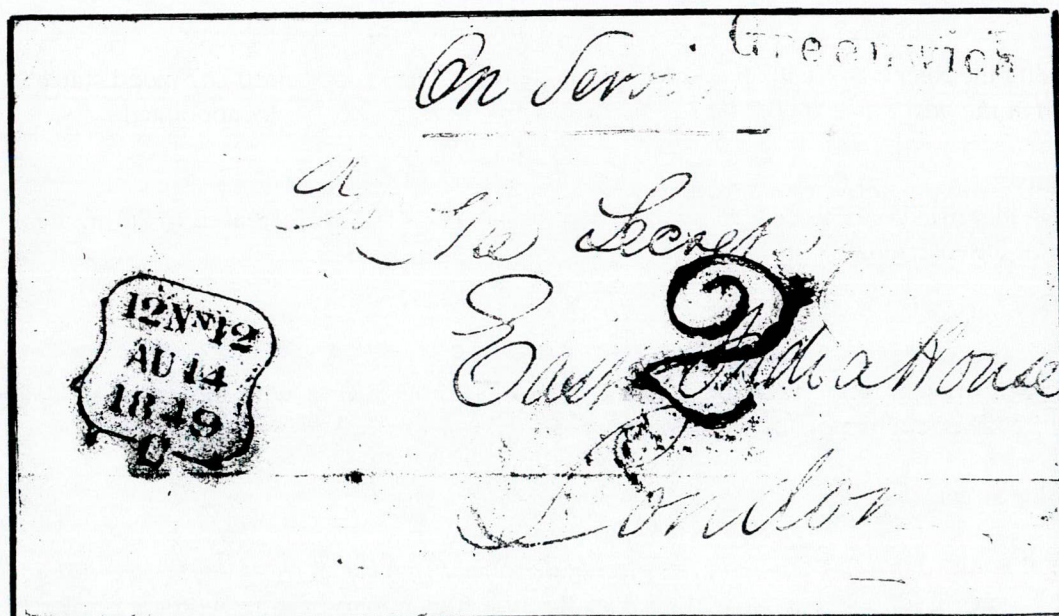 Greenwich
On Serv
The Secret
2
East India House
London
12NN12
AU 14
1849
C